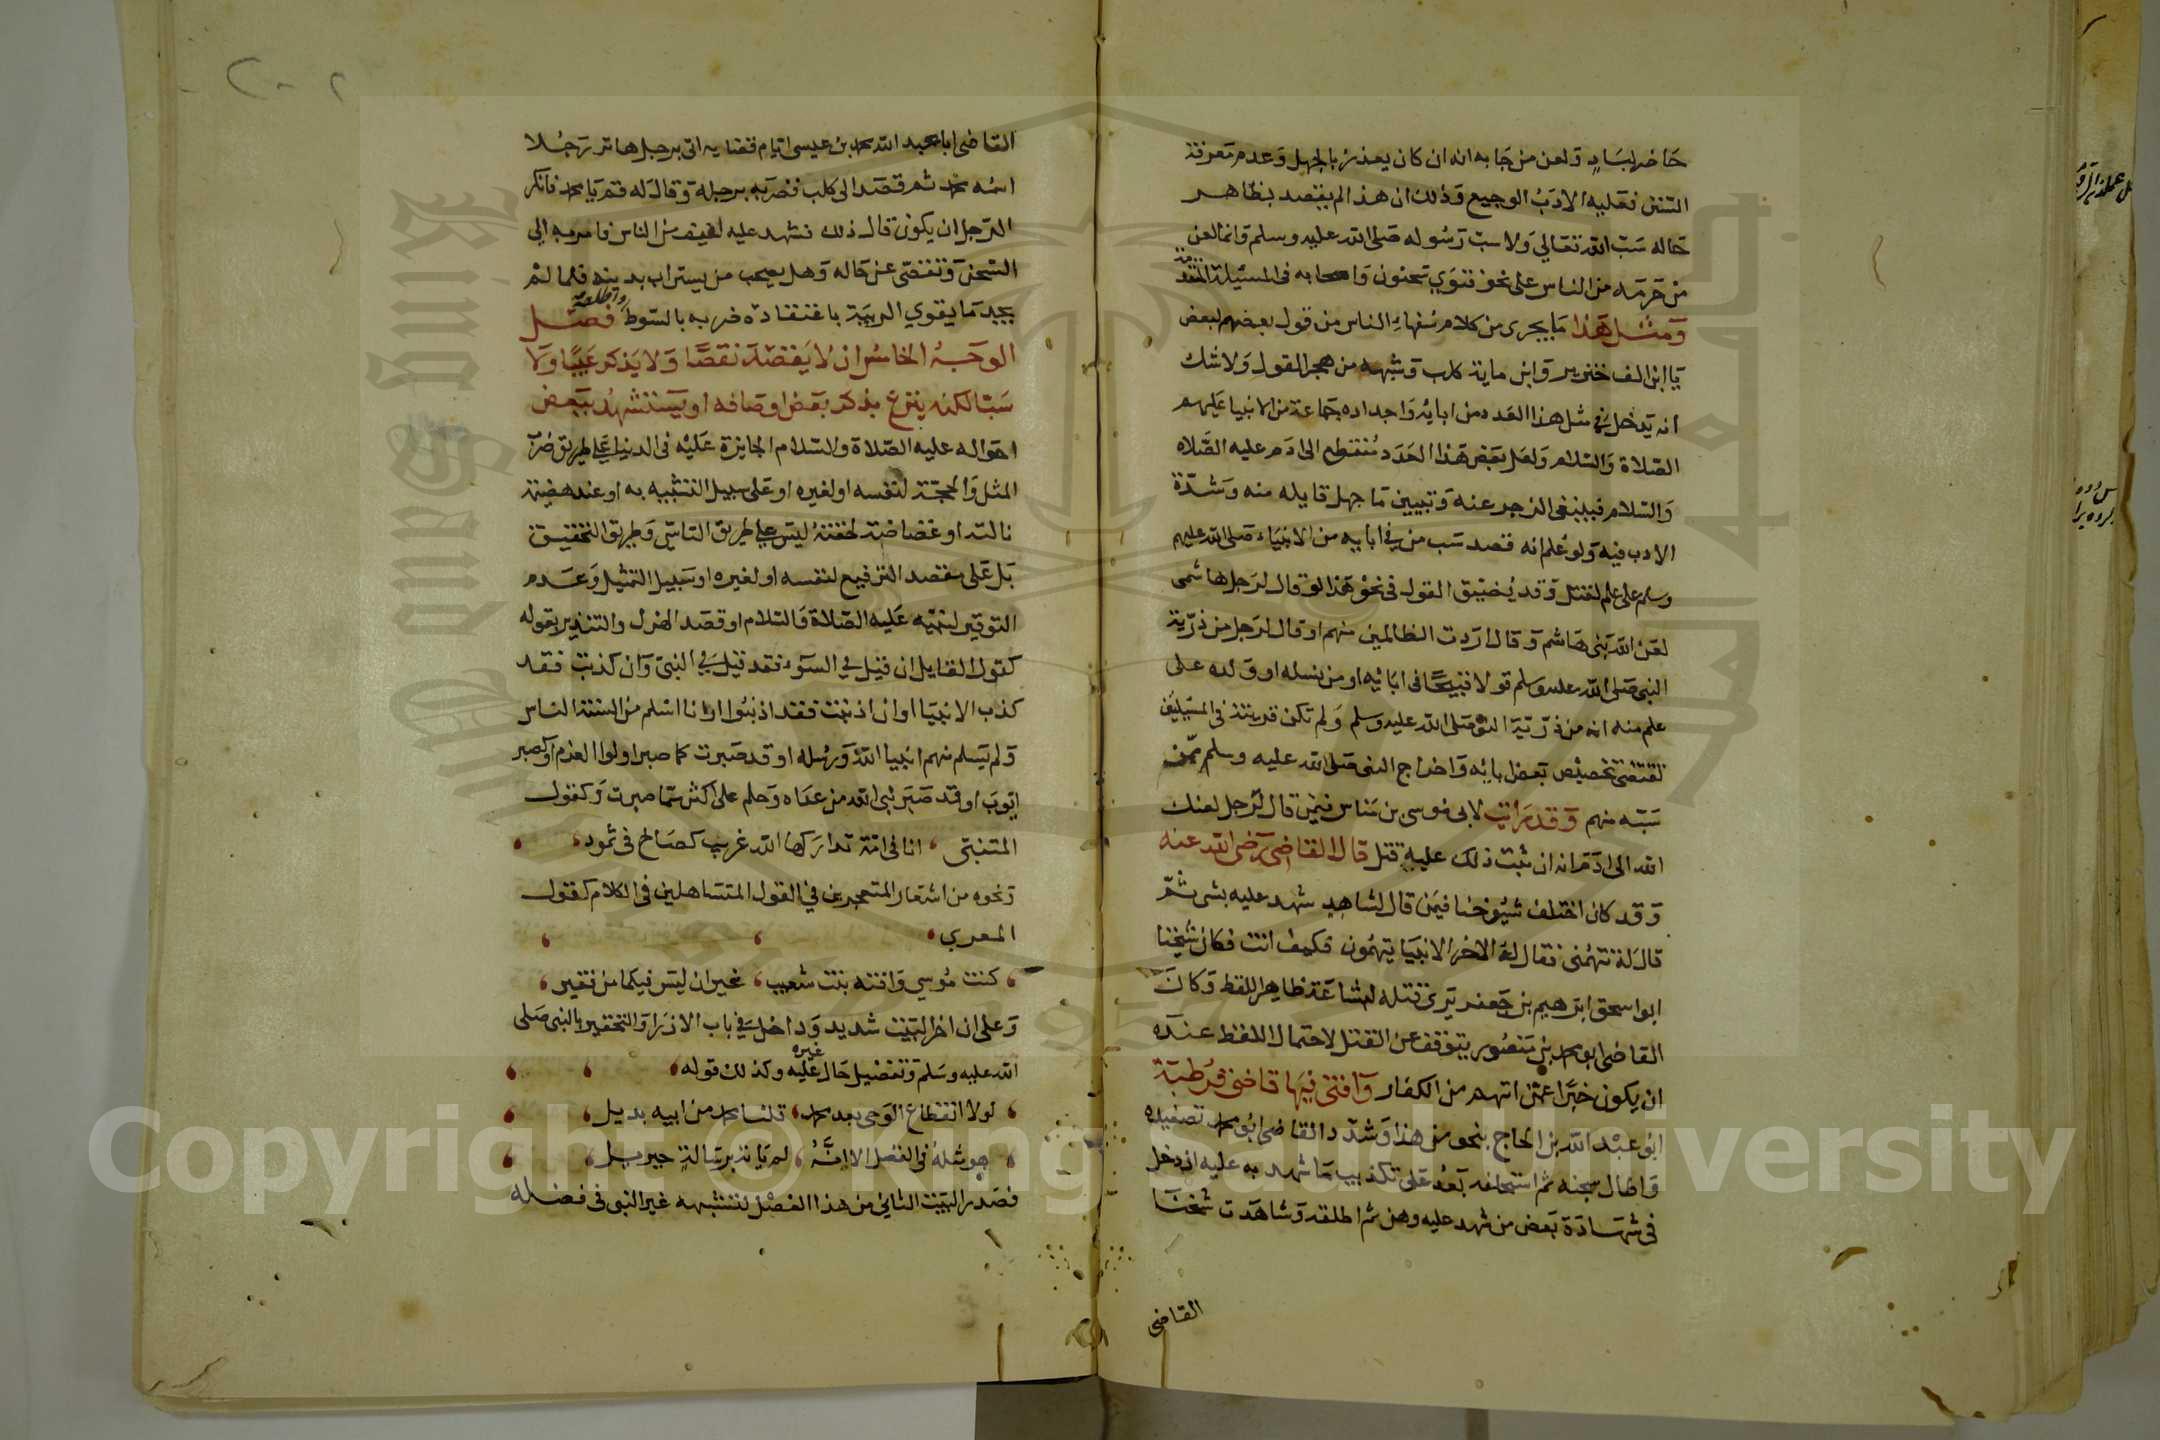 حاضر لباد ولعن من جا به انه ان كان يعذر بالجهل وعدم معرفة
السنن فعليه الادب الوجيع وذلك ان هذا لم يقصد بظاهر
حاله سب الله تعالي ولا سب رسوله صلى الله عليه وسلم وانما لعن
من حرمه من الناس على نحو فتوى سحنون واصحابه فى المسئلة المتقدمة
ومثل هذا ما يجرى من كلام سفهاء الناس من قول بعضهم لبعض
يا ابن الف خنزير وابن ماية كلب وشبهه من هجر القول ولا شك
انه يدخل في مثل هذا العدد من ابائه واجداده جماعة من الانبيا عليهم
الصلاة والسلام ولعل بعض هذا العدد منقطع الى ادم عليه الصلاه
والسلام فينبغى الزجر عنه وتبيين ما جهل قايله منه وشدة
الادب فيه ولو علم انه قصد سب من في ابايه من الانبياء صلى الله عليهم
وسلم على علم لقتل وقد يضيق القول فى نحو هذا لو قال لرجل هاشمى
لعن الله بنى هاشم وقال اردت الظالمين منهم او قال لرجل من ذرية
النبى صلى الله عليه وسلم قولا قبيحا فى ابائه او من نسله او ولده على
علم منه انه من ذرية النبى صلى الله عليه وسلم ولم تكن قرينة فى المسئلتين
تقتضى تخصيص بعض بائه واخراج النبى صلى الله عليه وسلم ممن
سبه منهم وقد رايت لابى موسى بن مناس فيمن قال لرجل لعنك
الله الى ادم انه ان ثبت ذلك عليه قتل قال القاضى رضى الله عنه
وقد كان اختلف شيوخنا فيمن قال لشاهد شهد عليه بشى ثم
قال له تتهمنى فقال له الاخر الانبيا يتهمون فكيف انت فكان شيخنا
ابو اسحق ابرهيم بن جعفر يرى قتله لبشاعة ظاهر اللفظ وكان
القاضى ابو محمد بن منصور يتوقف عن القتل لاحتمال اللفظ عنده
ان يكون خبرا عمن اتهم من الكفار وافتى فيها قاضى قرطبة
ابو عبد الله بن الحاج بنحو من هذا وشدد القاضى ابو محمد تصفيده
واطال سجنه ثم استحلفه بعد على تكذيب ما شهد به عليه اذ دخل
فى شهادة بعض من شهد عليه وهن ثم اطلقه وشاهدت شيخنا
القاضى
القاضى ابا عبد الله محمد بن عيسى ايام قضايه اتى برجل هاتر رجلا
اسمه محمد ثم قصد الى كلب فضربه برجله وقال له قم يا محمد فانكر
الرجل ان يكون قال ذلك فشهد عليه لفيف من الناس فامر به الي
السجن وتقصى عن حاله وهل يصحب من يستراب بدينه فلما لم
يجد ما يقوي الريبة باعتقاده ضربه بالسوط واطلقه فصل
الوجه الخامس ان لا يقصد نقصا ولا يذكر عيبا ولا
سبا لكنه ينزع بذكر بعض اوصافه او يستشهد ببعض
احواله عليه الصلاة والسلام الجايزة عليه فى الدنيا على طريق ضرب
المثل والحجة لنفسه او لغيره او على سبيل التشبيه به او عند هضيمة
نالته او غضاضة لحقته ليس على طريق التاسي وطريق التحقيق
بل على مقصد الترفيع لنفسه او لغيره او سبيل التمثيل وعدم
التوقير لنبيه عليه الصلاة والسلام او قصد الهزل والتنذير بقوله
كقول القايل ان قيل في السوء فقد قيل في النبى وان كذبت فقد
كذب الانبيا او ان اذنبت فقد اذنبوا او انا اسلم من السنة الناس
ولم يسلم منهم انبيا الله ورسله او قد صبرت كما صبر اولوا العزم او كصبر
ايوب او قد صبر نبى الله من عداه وحلم على اكثر مما صبرت وكقول
المتنبى انا فى امة تداركها الله غريب كصالح فى ثمود
ونحوه من اشعار المتعجرفين في القول المتساهلين فى الكلام كقول
المعري
كنت موسي وافته بنت شعيب غير ان ليس فيكما من فقير
وعلى ان اخر البيت شديد وداخل في باب الازرا والتحقير بالنبى صلى
الله عليه وسلم وتفضيل حال غيره عليه وكذلك قوله
لولا انقطاع الوحى بعد محمد قلنا محمد من ابيه بديل
هو مثله فى الفضل الا انه لم ياته برسالة جبريل
فصدر البيت الثاني من هذا الفصل لتشبيهه غير النبى فى فضله
Copyright © King Saud University